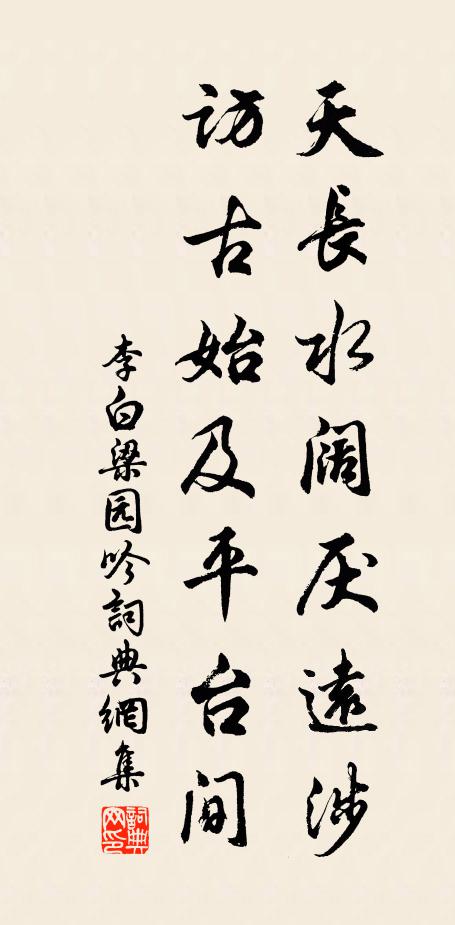 天長水阔厌遠涉
访古始及平台间
李白梁园吟詞典網集
詞典网印